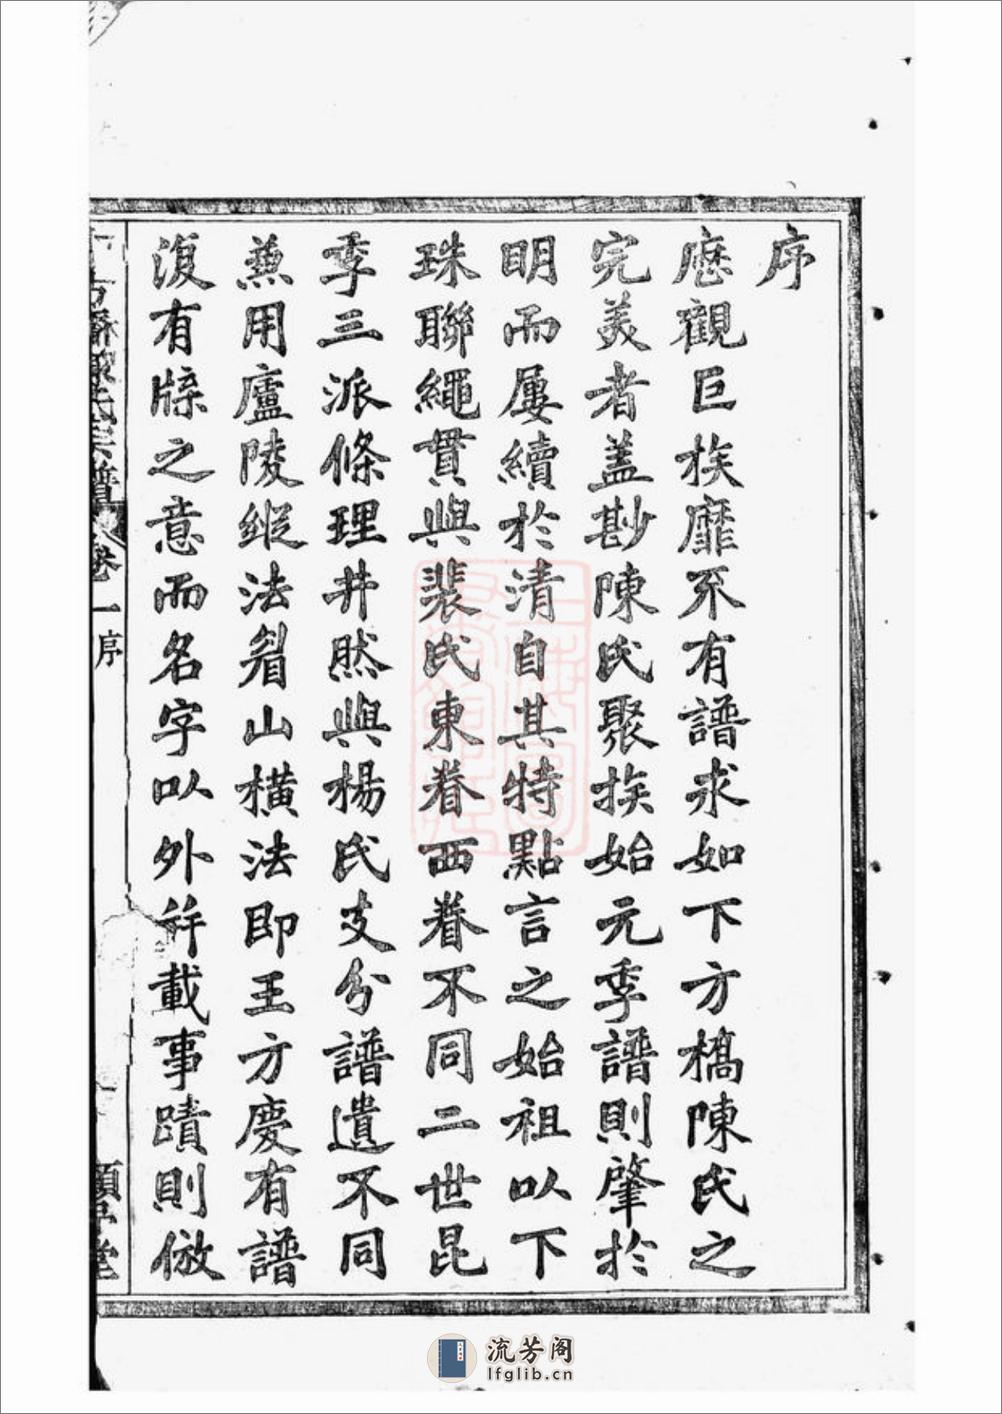 序
歷觀巨族靡不有譜求如下方橋陳氏之
完美者蓋尠陳氏聚族始元季譜則肇於
明而屢續於清自其特點言之始祖以下
珠聯繩貫與裴氏東眷西眷不同二世昆
季三派條理井然與楊氏支分譜遺不同
兼用廬陵縱法眉山橫法即王方慶有譜
復有牒之意而名字以外并載事蹟則倣
方橋陳氏宗譜 卷一 序
堂
流芳阁
lfglib.cn